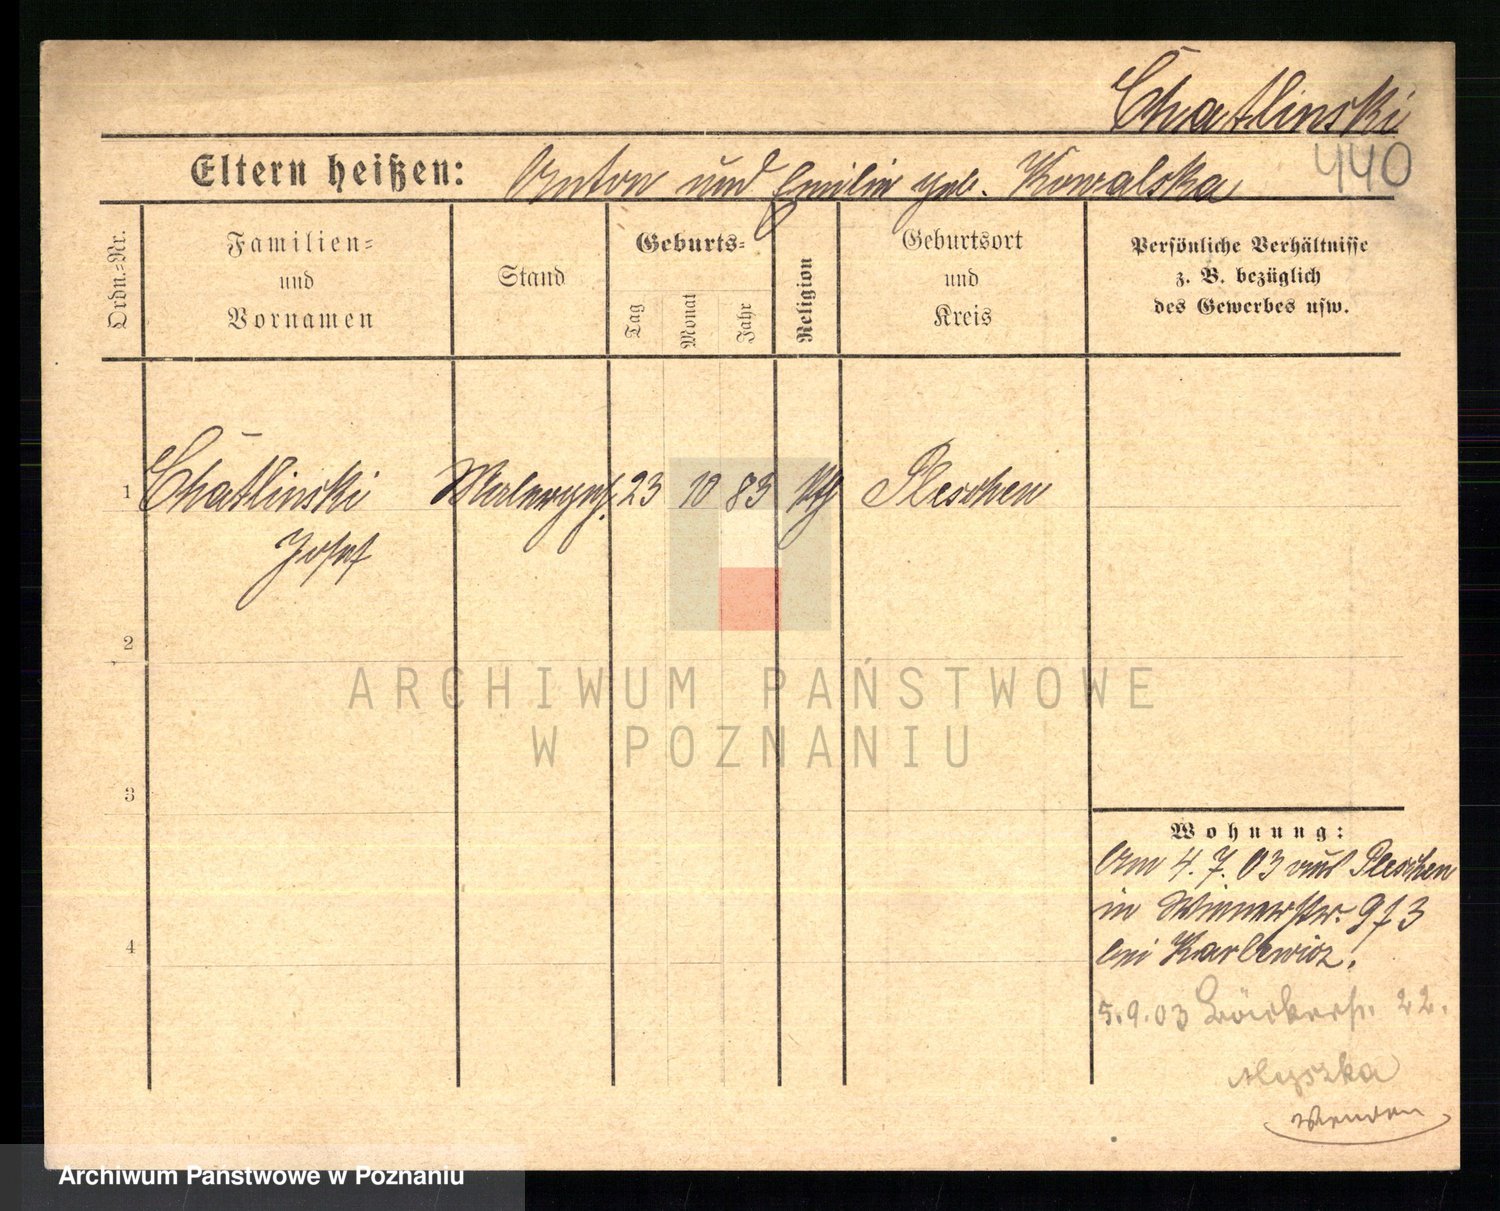 Chatlinski
440
Eltern heißen: Anton und Emilie geb. Kowalska
Ordn.-Nr.
Familien-
und
Vornamen
Stand
Geburts-
Tag
Monat
Jahr
Religion
Geburtsort
und
Kreis
Persönliche Verhältnisse
z. B. bezüglich
des Gewerbes usw.
1 Chatlinski Malergeh. 23 10 83 kth Pleschen
Josef
2
3
4
Wohnung:
Am 4.7.03 aus Pleschen
in Wienerstr. 9 f 3
bei Karlewicz.
5.9.03 Bäckerstr. 22.
Wenden
ARCHIWUM PAŃSTWOWE
W POZNANIU
Archiwum Państwowe w Poznaniu